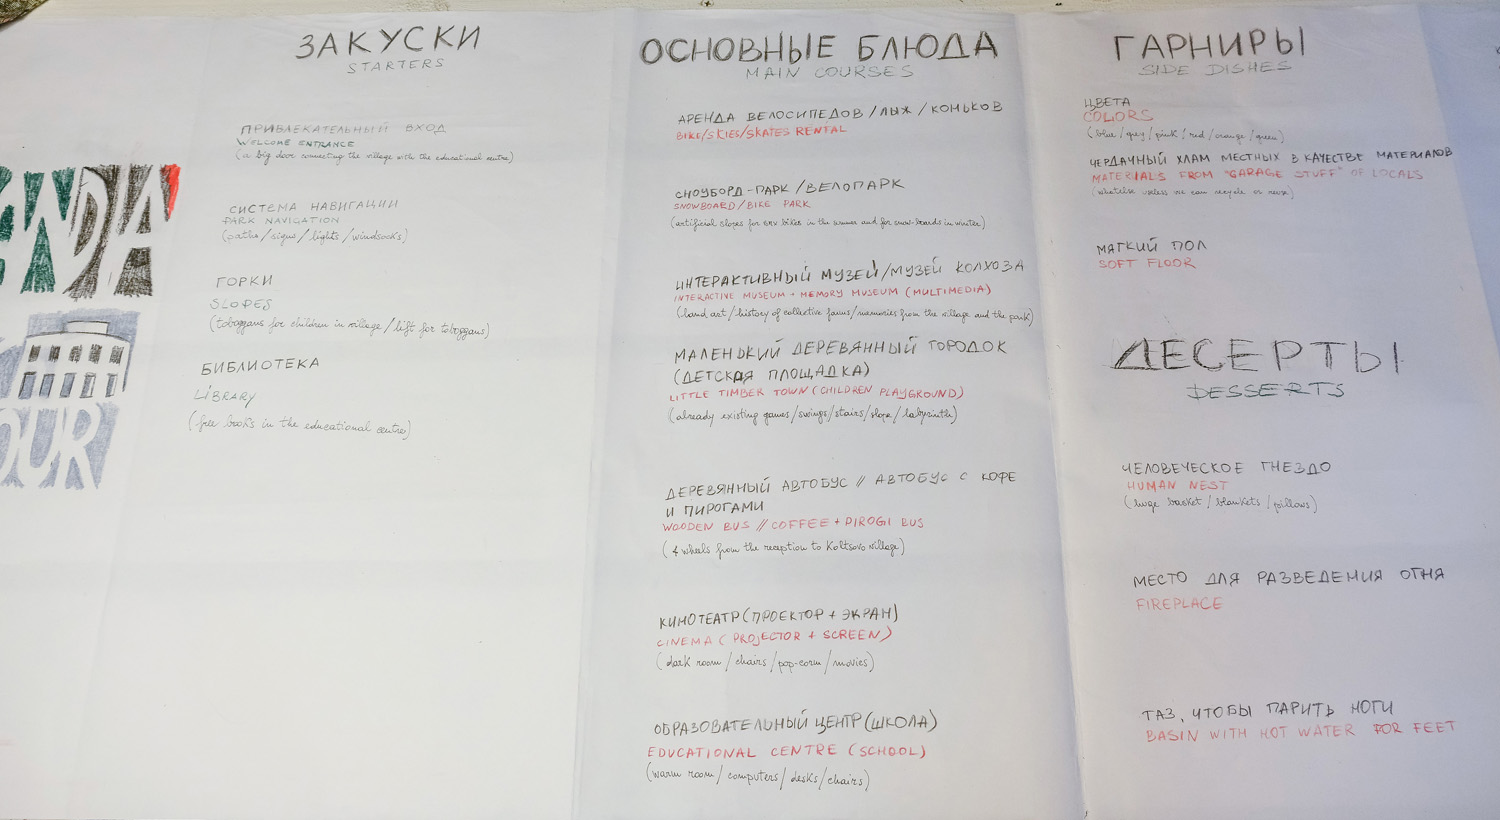 ЗАКУСКИ
STARTERS
ПРИВЛЕКАТЕЛЬНЫЙ ВХОД
WELCOME ENTRANCE
(a big door connecting the village with the educational centre)
СИСТЕМА НАВИГАЦИИ
PARK NAVIGATION
(paths/signs/lights/windsocks)
ГОРКИ
SLOPES
(toboggans for children in village/lift for toboggans)
БИБЛИОТЕКА
LIBRARY
(free books in the educational centre)
OUR
ОСНОВНЫЕ БЛЮДА
MAIN COURSES
АРЕНДА ВЕЛОСИПЕДОВ/ЛЫЖ/КОНЬКОВ
BIKE/SKIES/SKATES RENTAL
СНОУБОРД-ПАРК/ВЕЛОПАРК
SNOWBOARD/BIKE PARK
(artificial slopes for bikes in the summer and for snow-boards in winter)
ИНТЕРАКТИВНЫЙ МУЗЕЙ/МУЗЕЙ КОЛХОЗА
INTERACTIVE MUSEUM + MEMORY MUSEUM (MULTIMEDIA)
(land art/history of collective farms/memories from the village and the park)
МАЛЕНЬКИЙ ДЕРЕВЯННЫЙ ГОРОДОК
(ДЕТСКАЯ ПЛОЩАДКА)
LITTLE TIMBER TOWN (CHILDREN PLAYGROUND)
(already existing games/swings/stairs/slope/labyrinth)
ДЕРЕВЯННЫЙ АВТОБУС // АВТОБУС С КОФЕ
И ПИРОГАМИ
WOODEN BUS // COFFEE + PIROGI BUS
(4 wheels from the reception to Koltsovo village)
КИНОТЕАТР (ПРОЕКТОР + ЭКРАН)
CINEMA (PROJECTOR + SCREEN)
(dark room/chairs/pop-corn/movies)
ОБРАЗОВАТЕЛЬНЫЙ ЦЕНТР (ШКОЛА)
EDUCATIONAL CENTRE (SCHOOL)
(warm room/computers/desks/chairs)
ГАРНИРЫ
SIDE DISHES
ЦВЕТА
COLORS
(blue/grey/pink/red/orange/green)
ЧЕРДАЧНЫЙ ХЛАМ МЕСТНЫХ В КАЧЕСТВЕ МАТЕРИАЛОВ
MATERIALS FROM "GARAGE STUFF" OF LOCALS
(whatelse useless we can recycle or reuse)
МЯГКИЙ ПОЛ
SOFT FLOOR
ДЕСЕРТЫ
DESSERTS
ЧЕЛОВЕЧЕСКОЕ ГНЕЗДО
HUMAN NEST
(huge basket/blankets/pillows)
МЕСТО ДЛЯ РАЗВЕДЕМИЯ ОГНЯ
FIREPLACE
ТАЗ, ЧТОБЫ ПАРИТЬ НОГИ
BASIN WITH HOT WATER FOR FEET